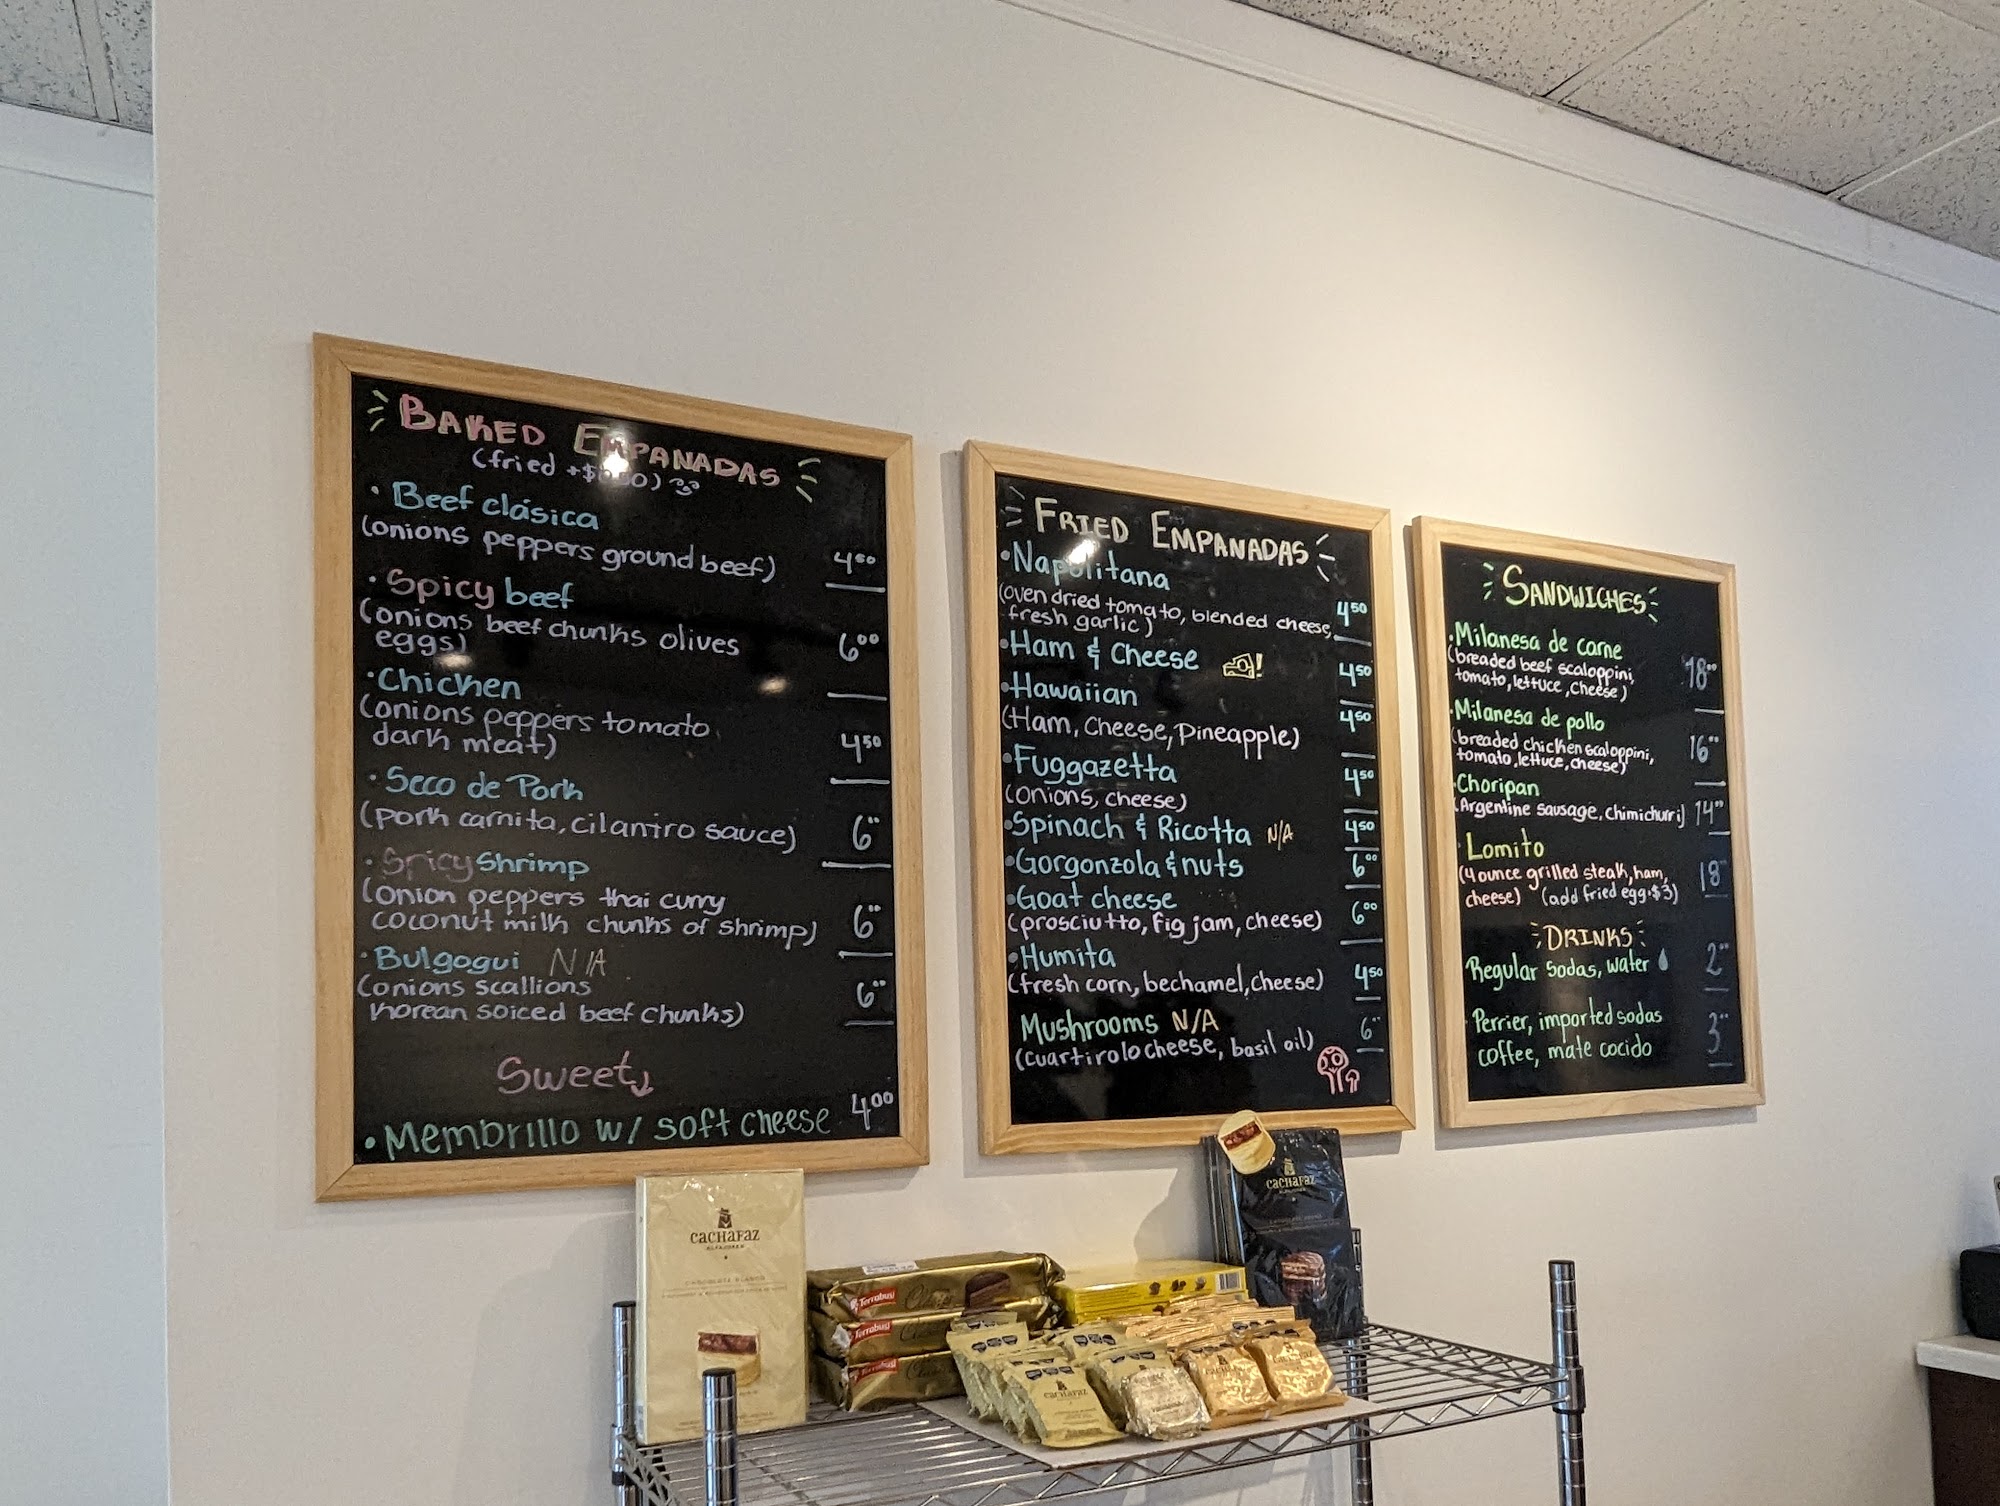 BAKED EMPANADAS
(fried +$
• Beef clásica
(onions peppers ground beef) 4⁵⁰
• Spicy beef
(onions beef chunks olives
eggs) 6⁰⁰
• Chicken
(onions peppers tomato
dark meat) 4⁵⁰
• Seco de Pork
(pork carnita, cilantro sauce) 6⁰⁰
• Spicy Shrimp
(onion peppers thai curry
coconut milk chunks of shrimp) 6⁰⁰
• Bulgogui N/A
(onions scallions
Korean soiced beef chunks) 6⁰⁰
Sweet
• Membrillo w/ soft cheese 4⁰⁰
FRIED EMPANADAS
• Napolitana
(oven dried tomato, blended cheese,
fresh garlic) 4⁵⁰
• Ham & Cheese 4⁵⁰
• Hawaiian 4⁵⁰
(Ham, Cheese, Pineapple)
• Fuggazetta 4⁵⁰
(onions, cheese)
• Spinach & Ricotta N/A 4⁵⁰
• Gorgonzola & nuts 6⁰⁰
• Goat cheese 6⁰⁰
(prosciutto, fig jam, cheese)
• Humita
(fresh corn, bechamel, cheese) 4⁵⁰
Mushrooms N/A 6⁰⁰
(cuartirolo cheese, basil oil)
SANDWICHES
• Milanesa de carne
(breaded beef scaloppini,
tomato, lettuce, cheese) 18⁰⁰
• Milanesa de pollo
(breaded chicken scaloppini,
tomato, lettuce, cheese) 16⁰⁰
• Choripan
(Argentine sausage, chimichurri) 14⁰⁰
• Lomito
(4 ounce grilled steak, ham,
cheese) (add fried egg •$3) 18
DRINKS
Regular sodas, water 2⁰⁰
• Perrier, imported sodas
coffee, mate cocido 3⁰⁰
CACHAFAZ
ALFAJORES
CHOCOLATE BLANCO
Terrabusi
Terrabusi
Terrabusi
CACHAFAZ
CACHAFAZ
ALFAJORES